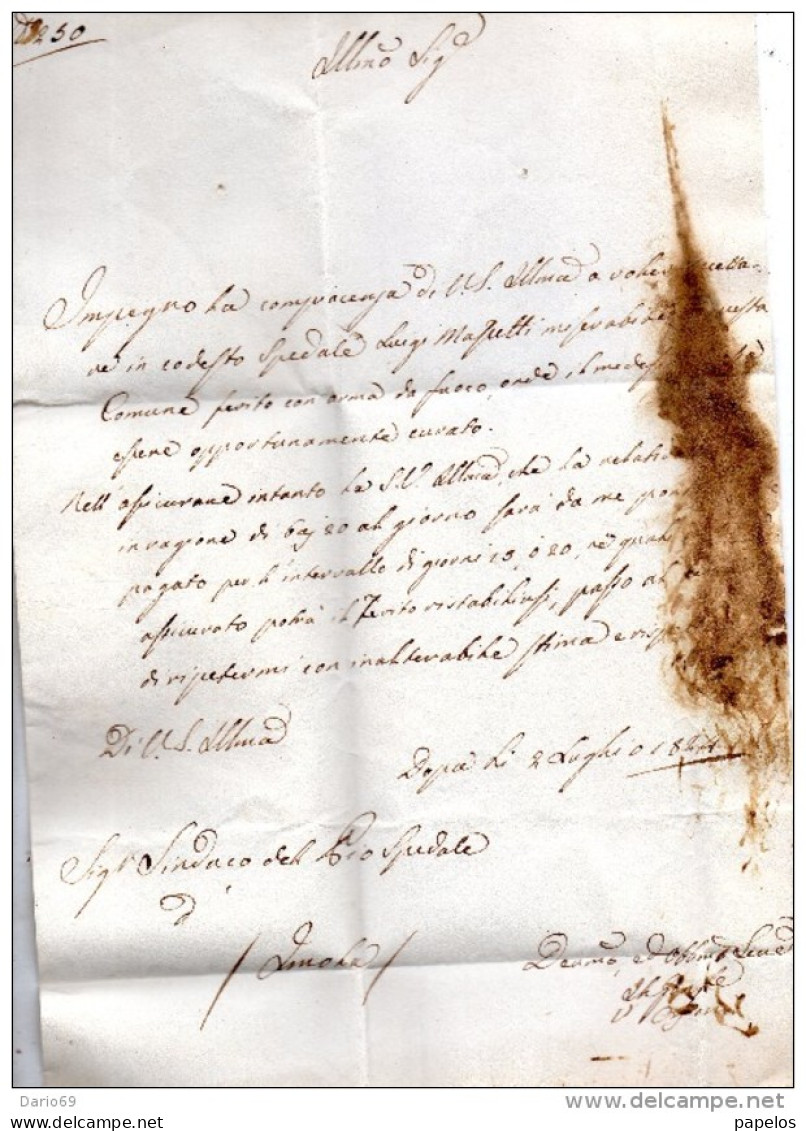 250
Illmo Sigre
Impegno la compiacenza di V. S. Illma a voler accetta-
re in codesto Spedale Luigi Massetti miserabile questa
Comune ferito con arma da fuoco, onde il
essere opportunamente curato.
Nell' assicurare intanto la S. V. Illma, che la
in ragione di baj 20 al giorno sarà da me
pagato per l'intervallo di giorni 15, o 20, ne
assicurato potrà il Ferito ristabilirsi, passo al
di ripetermi con inalterabile stima e
Di V. S. Illma
li 2 Luglio
Sigr Sindaco del Pio Spedale
di
/ Imola /
Devmo, ed Obbmo Serre
Dario69
delcampe.net
papelos